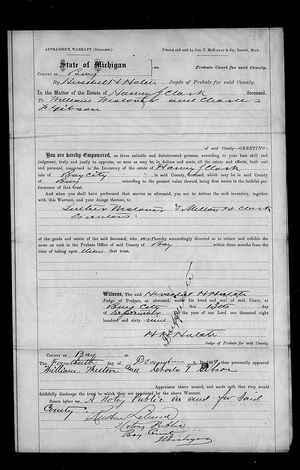 APPRAISER'S WARRANT (DECEASED.) Printed and sold by Jno. F. McKinlay & Co., Detroit, Mich.
State of Michigan } ss. Probate Court for said County.
COUNTY OF Bay
By Herschel H Hatch Judge of Probate for said County.
In the Matter of the Estate of Harvey J Clark deceased.
To William and Charles
F Gibson
of said County,—GREETING:
You are hereby Empowered, as three suitable and disinterested persons, according to your best skill and
judgment, truly and justly to appraise, as soon as may be, in dollars and cents, all the estate and effects, both real
and personal, comprised in the Inventory of the estate of Harvey J Clark
late of Bay City in said County, deceased, which may be in said County
of Bay according to the present value thereof, being first sworn to the faithful per-
formance of that trust.
And when you shall have performed that service as aforesaid, you are to deliver the said inventory, together
with this Warrant, and your doings thereon, to
Luther & Milton H Clark
Executors
of the goods and estate of the said deceased, who are hereby accordingly directed to return and exhibit the
same on oath in the Probate Office of said County of Bay within three months from the
time of taking upon their trust.
Witness, The said Herschel H Hatch
Judge of Probate, as aforesaid, under his hand and seal of said Court, at
Bay City this 13th day
of September in the year of our Lord one thousand eight hundred
and sixty nine
H H Hatch
Judge of Probate for said County.
COUNTY OF Bay
The fourteenth day of 1869 then personally appeared
William and Charles F Gibson
Appraisers above named, and made oath that they would
faithfully discharge the trust to which they are appointed by the above Warrant.
Sworn before me, A Notary Public in and for said
County
Notary Public
Bay County
Michigan